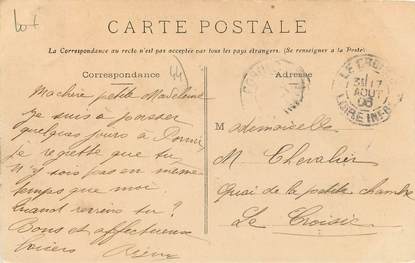 Lot
CARTE POSTALE
La Correspondance au recto n'est pas acceptée par tous les pays étrangers. (Se renseigner à la Poste)
Correspondance
44
Adresse
Ma chère petite Madeleine
je suis à passer
quelques jours à
je regrette que tu
n'y sois pas en même
temps que moi.
Quand reviens tu ?
Bons et affectueux
baisers
Mademoiselle
M Chevalier
Quai de la petite chambre
Le Croisic
LE CROISIC
31 AOUT
LOIRE INFRE